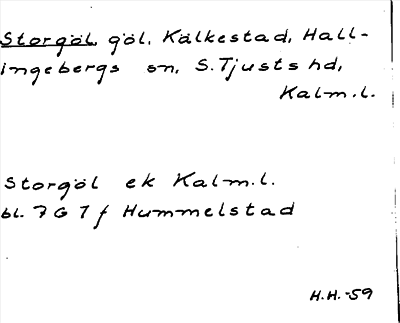 Storgöl, göl, Kälkestad, Hall-
ingebergs sn, S. Tjusts hd,
Kalm. l.
Storgöl ek Kalm. l.
bl. 7 G 7 f Hummelstad
H.H. -59